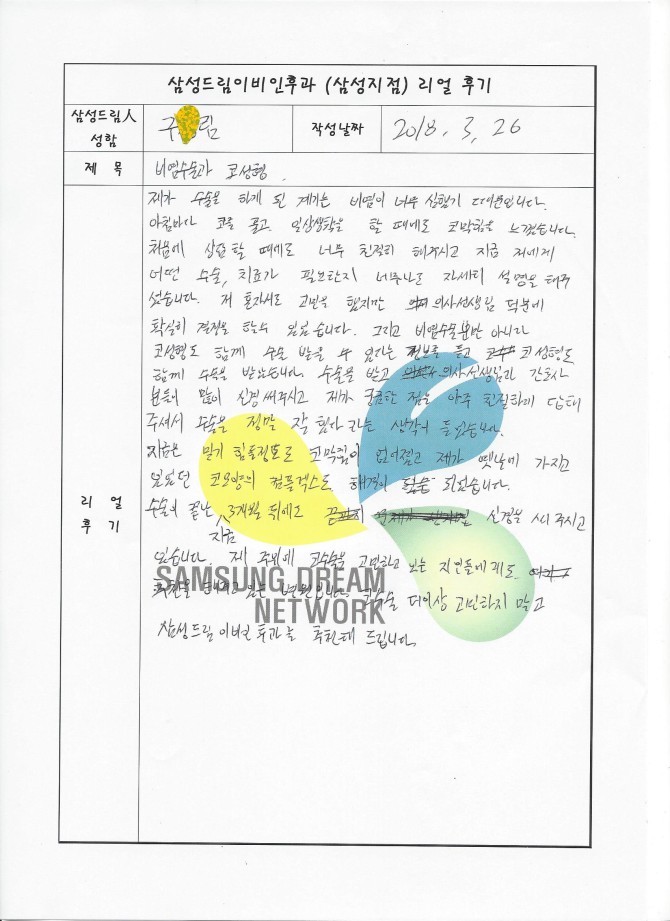 삼성드림이비인후과 (삼성지점) 리얼 후기
삼성드림人
성함
구 림
작성날짜
2018. 3. 26
제 목
비염수술과 코성형.
리 얼
후 기
제가 수술을 하게 된 계기는 비염이 너무 심했기 때문입니다.
아침마다 코를 풀고 일상생활을 할 때에도 코막힘을 느꼈습니다.
처음에 상담할 때에도 너무 친절히 해주시고 지금 저에게
어떤 수술, 치료가 필요한지 너무나도 자세히 설명을 해주
셨습니다. 저 혼자서도 고민을 했지만 의사선생님 덕분에
확실히 결정을 할수 있었습니다. 그리고 비염수술뿐만 아니라
코성형도 함께 수술 받을 수 있다는 정보를 듣고 코성형도
함께 수술을 받았습니다. 수술을 받고 의사선생님과 간호사
분들이 많이 신경써주시고 제가 궁금한 점은 아주 친절하게 답해
주셔서 수술을 정말 잘 했다 라는 생각이 들었습니다.
지금은 믿기 힘들정도로 코막힘이 없어졌고 제가 옛날에 가지고
있었던 코모양의 컴플렉스도 해결이 되었습니다.
수술이 끝난 3개월 뒤에도 신경을 써 주시고
지금
있습니다. 제 주위에 코수술을 고민하고 있는 지인들에게도
있는 병원입니다. 코수술 더이상 고민하지 말고
삼성드림이비인후과를 추천해 드립니다.
SAMSUNG DREAM
NETWORK